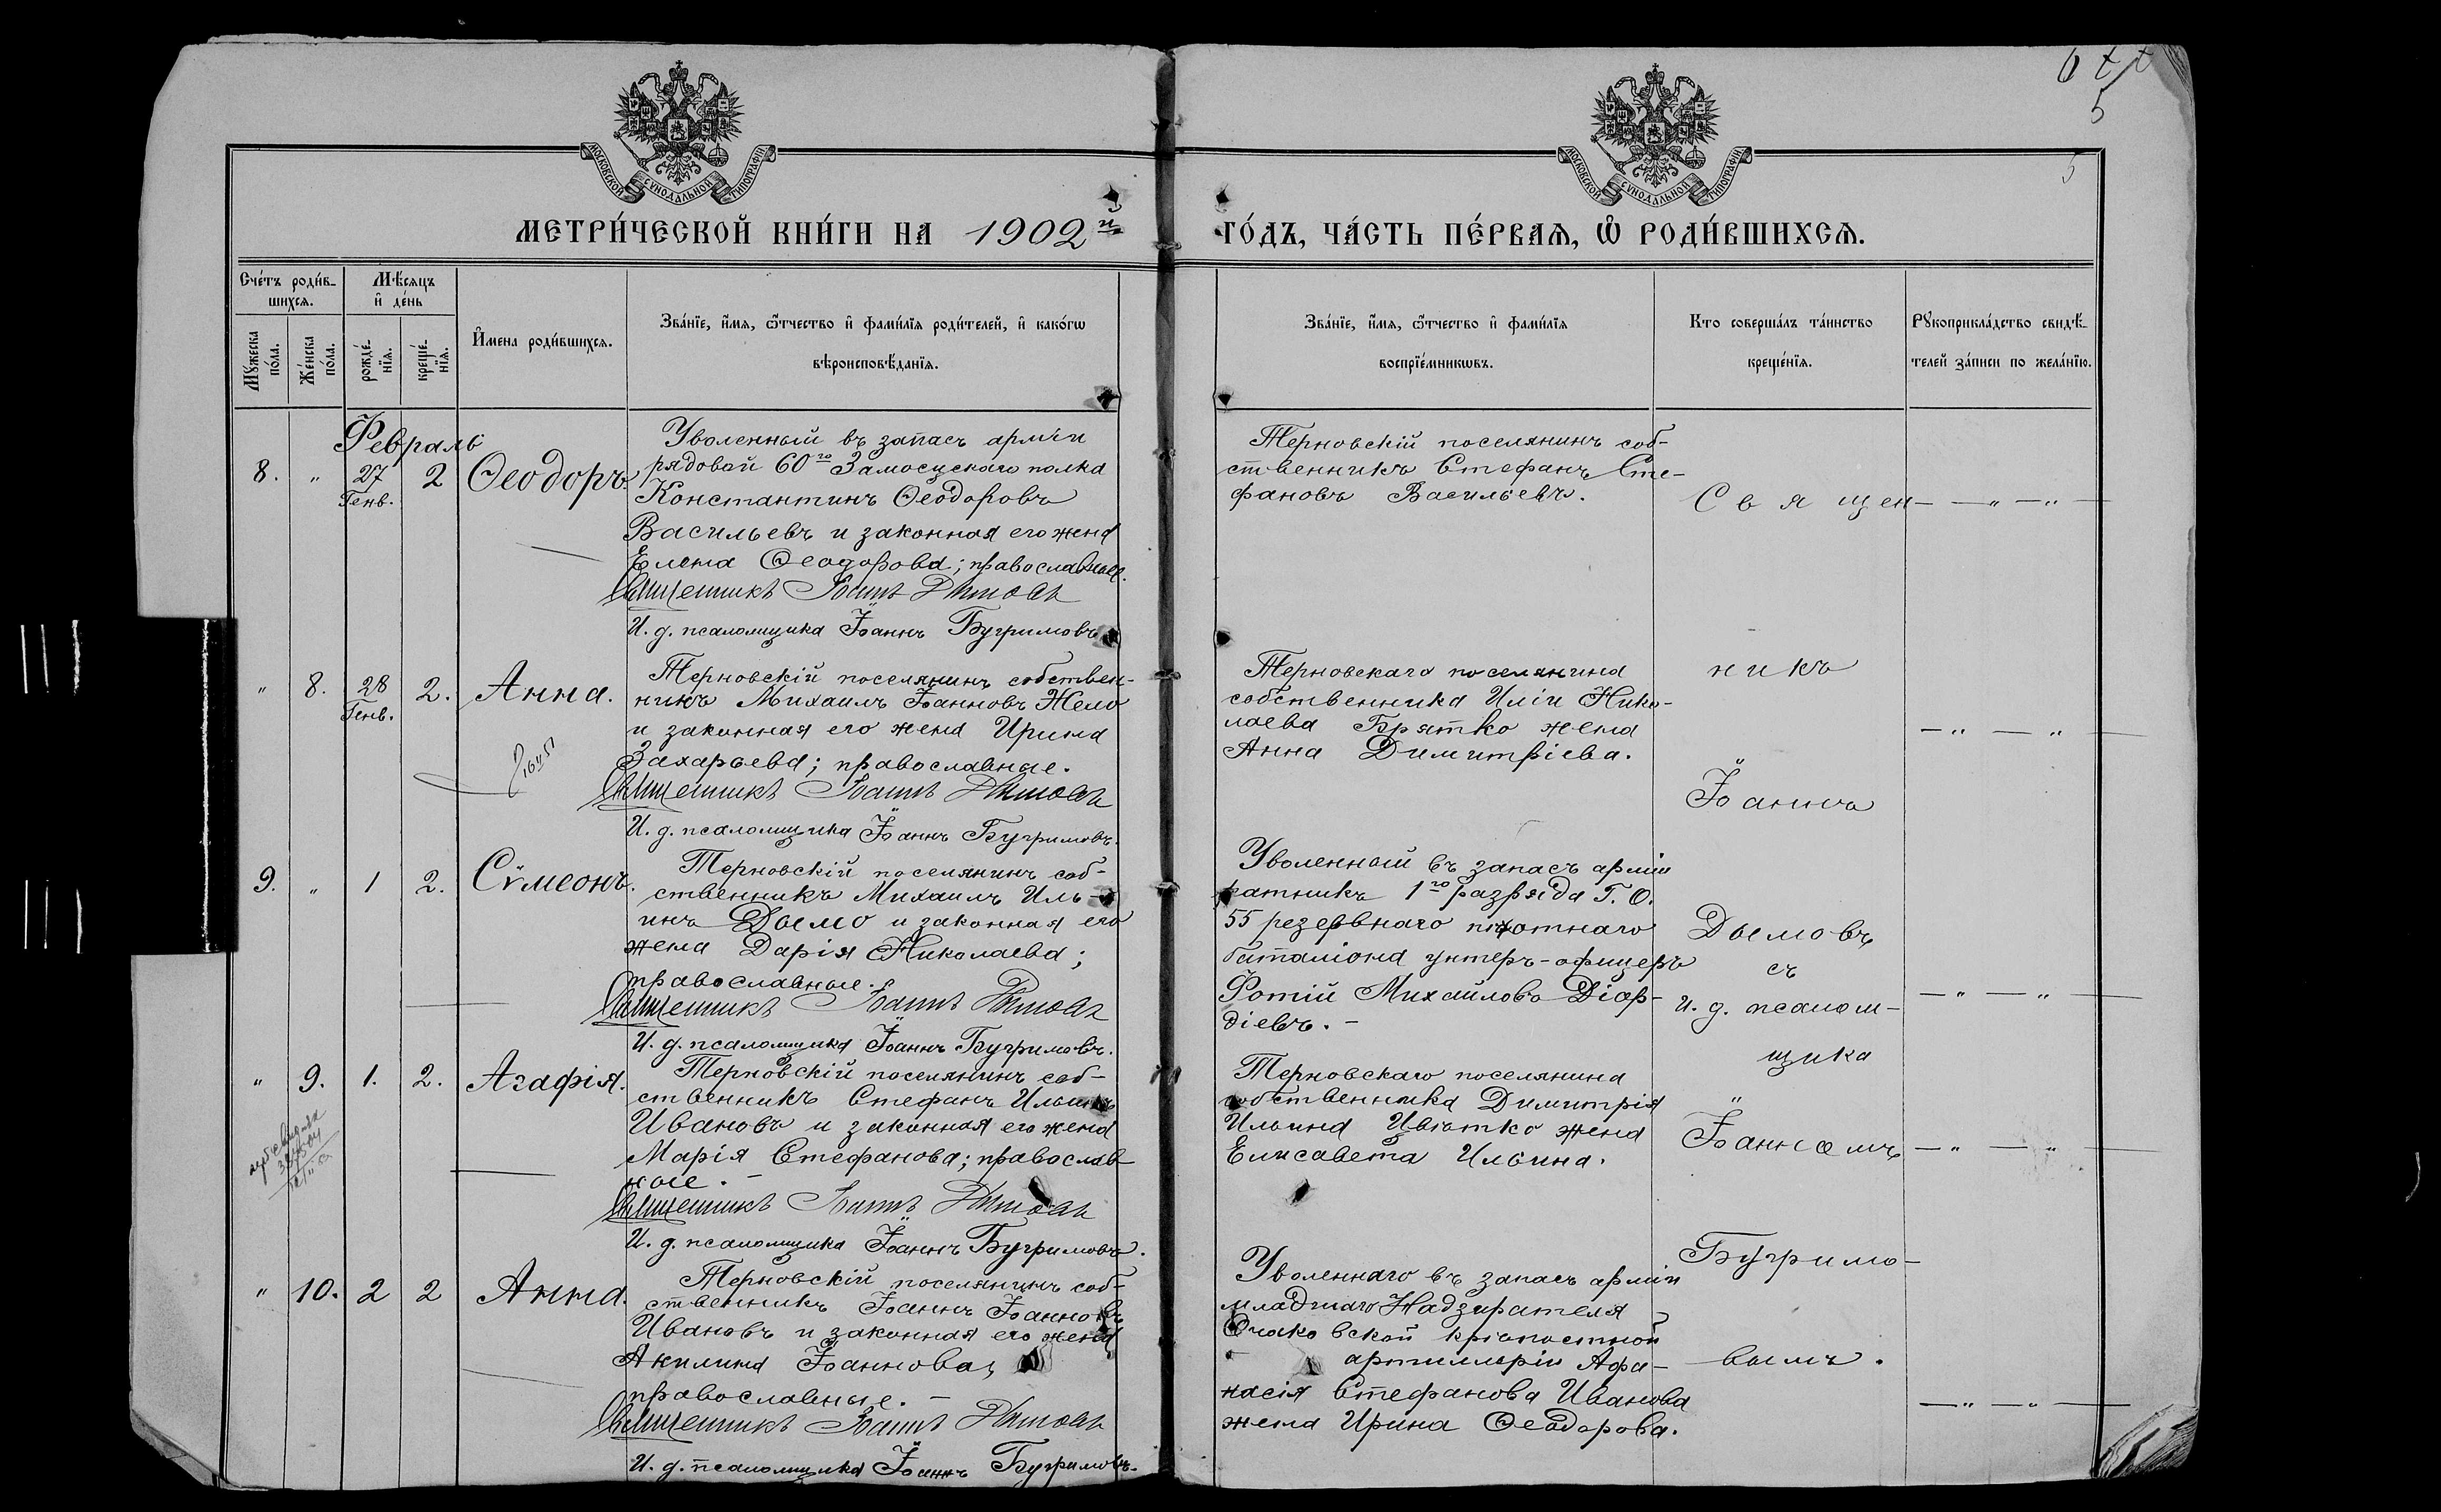 6
5
5
МОСКОВСКОЙ СУНОДАЛЬНОЙ ТИПОГРАФІИ
МОСКОВСКОЙ СУНОДАЛЬНОЙ ТИПОГРАФІИ
МЕТРИ́ЧЕСКОЙ КНИ́ГИ НА 1902й
ГО́ДЪ, ЧА́СТЬ ПЕ́РВАЯ, Ѿ РОДИ́ВШИХСЯ.
Сче́тъ роди́в-
шихся.
Мѣ́сяцъ
и҆ де́нь
Мꙋ́жеска
по́ла.
Же́нска
по́ла.
рожде́-
нїя.
креще́-
нїя.
И҆мена роди́вшихся.
Зва́нїе, и҆́мя, ѻ҆́тчество и҆ фами́лїя роди́телей, и҆ како́гѡ
вѣроисповѣ́данїя.
Зва́нїе, и҆́мя, ѻ҆́тчество и҆ фами́лїя
воспрїе́мникѡвъ.
Кто соверша́лъ та́инство
креще́нїя.
Рꙋкоприкла́дство свидѣ́-
телей за́писи по жела́нїю.
Февраль
8. " 27 2 Ѳеодоръ.
Генв.
Уволенный въ запасъ арміи
рядовой 60го Замосцскаго полка
Константинъ Ѳеодоровъ
Васильевъ и законная его жена
Елена Ѳеодорова; православные.
Священникъ Іоаннъ Дымовъ
И. д. псаломщика Іоаннъ Бугримовъ
Терновскій поселянинъ соб-
ственникъ Стефанъ Сте-
фановъ Васильевъ.
Священ-
" 8. 28 2. Анна.
Генв.
Терновскій поселянинъ собствен-
никъ Михаилъ Іоанновъ Жело
и законная его жена Ирина
Захарьева; православные.
Священникъ Іоаннъ Дымовъ
И. д. псаломщика Іоаннъ Бугримовъ.
Терновскаго поселянина
собственника Иліи Нико-
лаева Братко жена
Анна Димитріева.
никъ
Іоаннъ
9. " 1 2. Сѵмеонъ.
Терновскій поселянинъ соб-
ственникъ Михаилъ Иль-
инъ Дымо и законная его
жена Дарія Николаева;
православные.
Священникъ Іоаннъ Дымовъ
И. д. псаломщика Іоаннъ Бугримовъ.
Уволенный въ запасъ арміи
ратникъ 1го разряда Г. О.
55 резервнаго пѣхотнаго
баталіона унтеръ-офицеръ
Фотій Михайловъ Діор-
діевъ. -
Дымовъ
съ
и. д. псалом-
щика
" 9. 1. 2. Агафія.
Терновскій поселянинъ соб-
ственникъ Стефанъ Ильинъ
Ивановъ и законная его жена
Марія Стефанова; православ-
ные. -
Священникъ Іоаннъ Дымовъ
И. д. псаломщика Іоаннъ Бугримовъ.
Терновскаго поселянина
собственника Димитрія
Ильина Цвѣтко жена
Елисавета Ильина.
Іоанномъ
" 10. 2 2 Анна.
Терновскій поселянинъ соб-
ственникъ Іоаннъ Іоанновъ
Ивановъ и законная его жена
Акилина Іоаннова,
православные. -
Священникъ Іоаннъ Дымовъ
И. д. псаломщика Іоаннъ Бугримовъ.
Уволеннаго въ запасъ арміи
младшаго Надзирателя
Очаковской крѣпостной
артиллеріи Афа-
насія Стефанова Иванова
жена Ирина Ѳеодорова.
Бугримо-
вымъ.